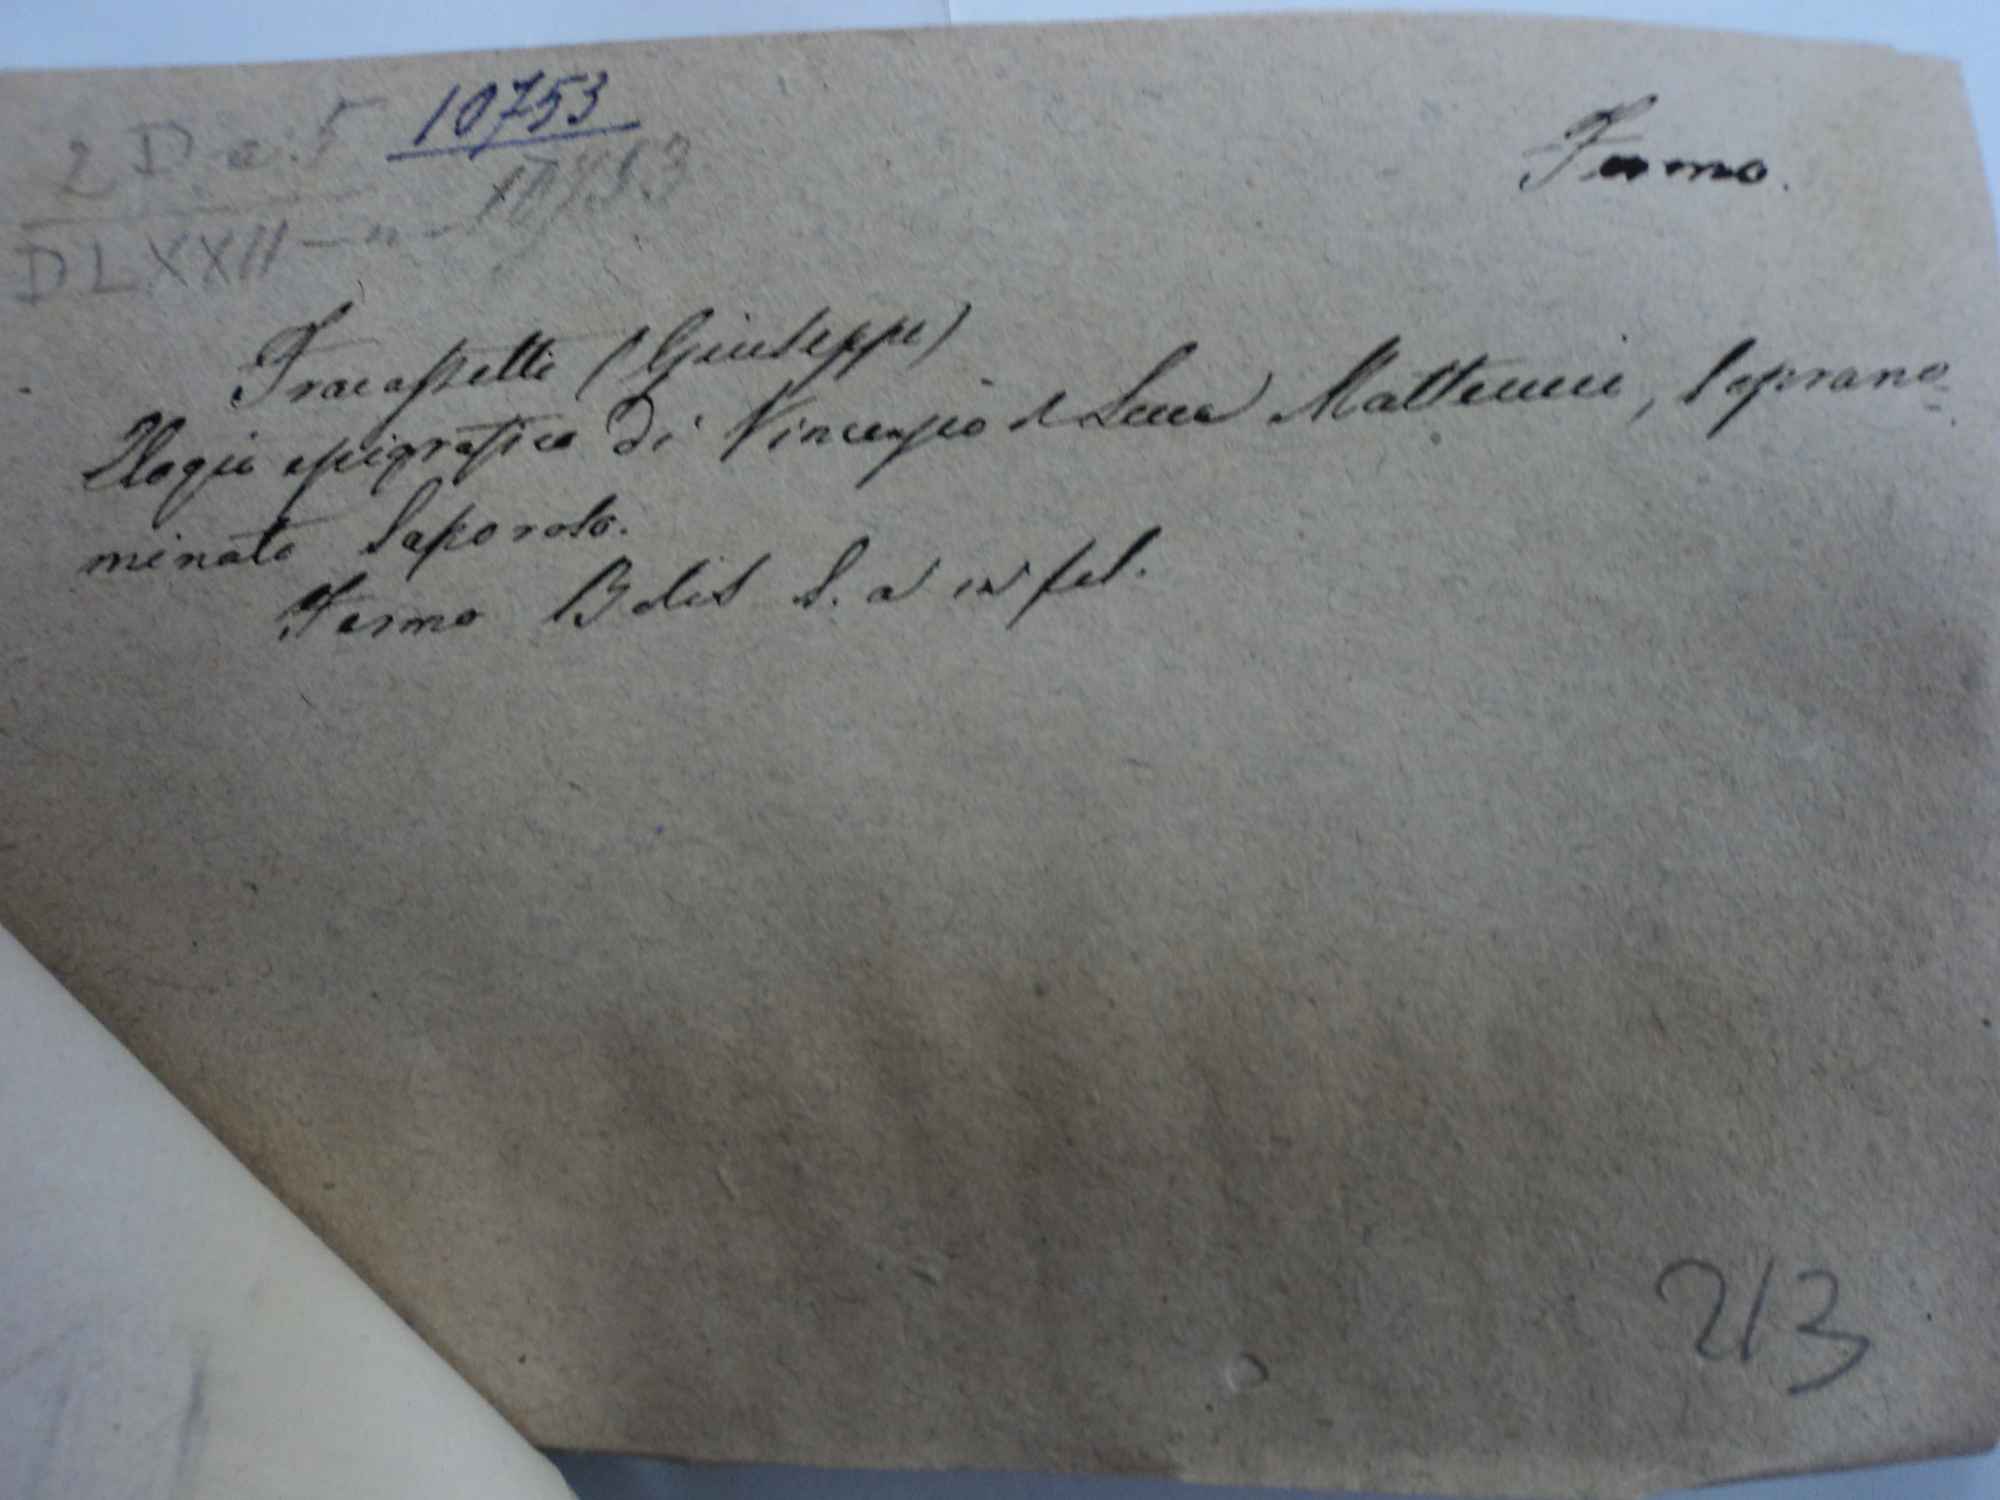 2 D a. 5
10753
Fermo.
DLXXII — n. 10753
Fracassetti (Giuseppe)
Elogio epigrafico di Vincenzo e Luca Matteucci, sopranno-
minato Saporoso.
Fermo Bolis S. a in fol.
213